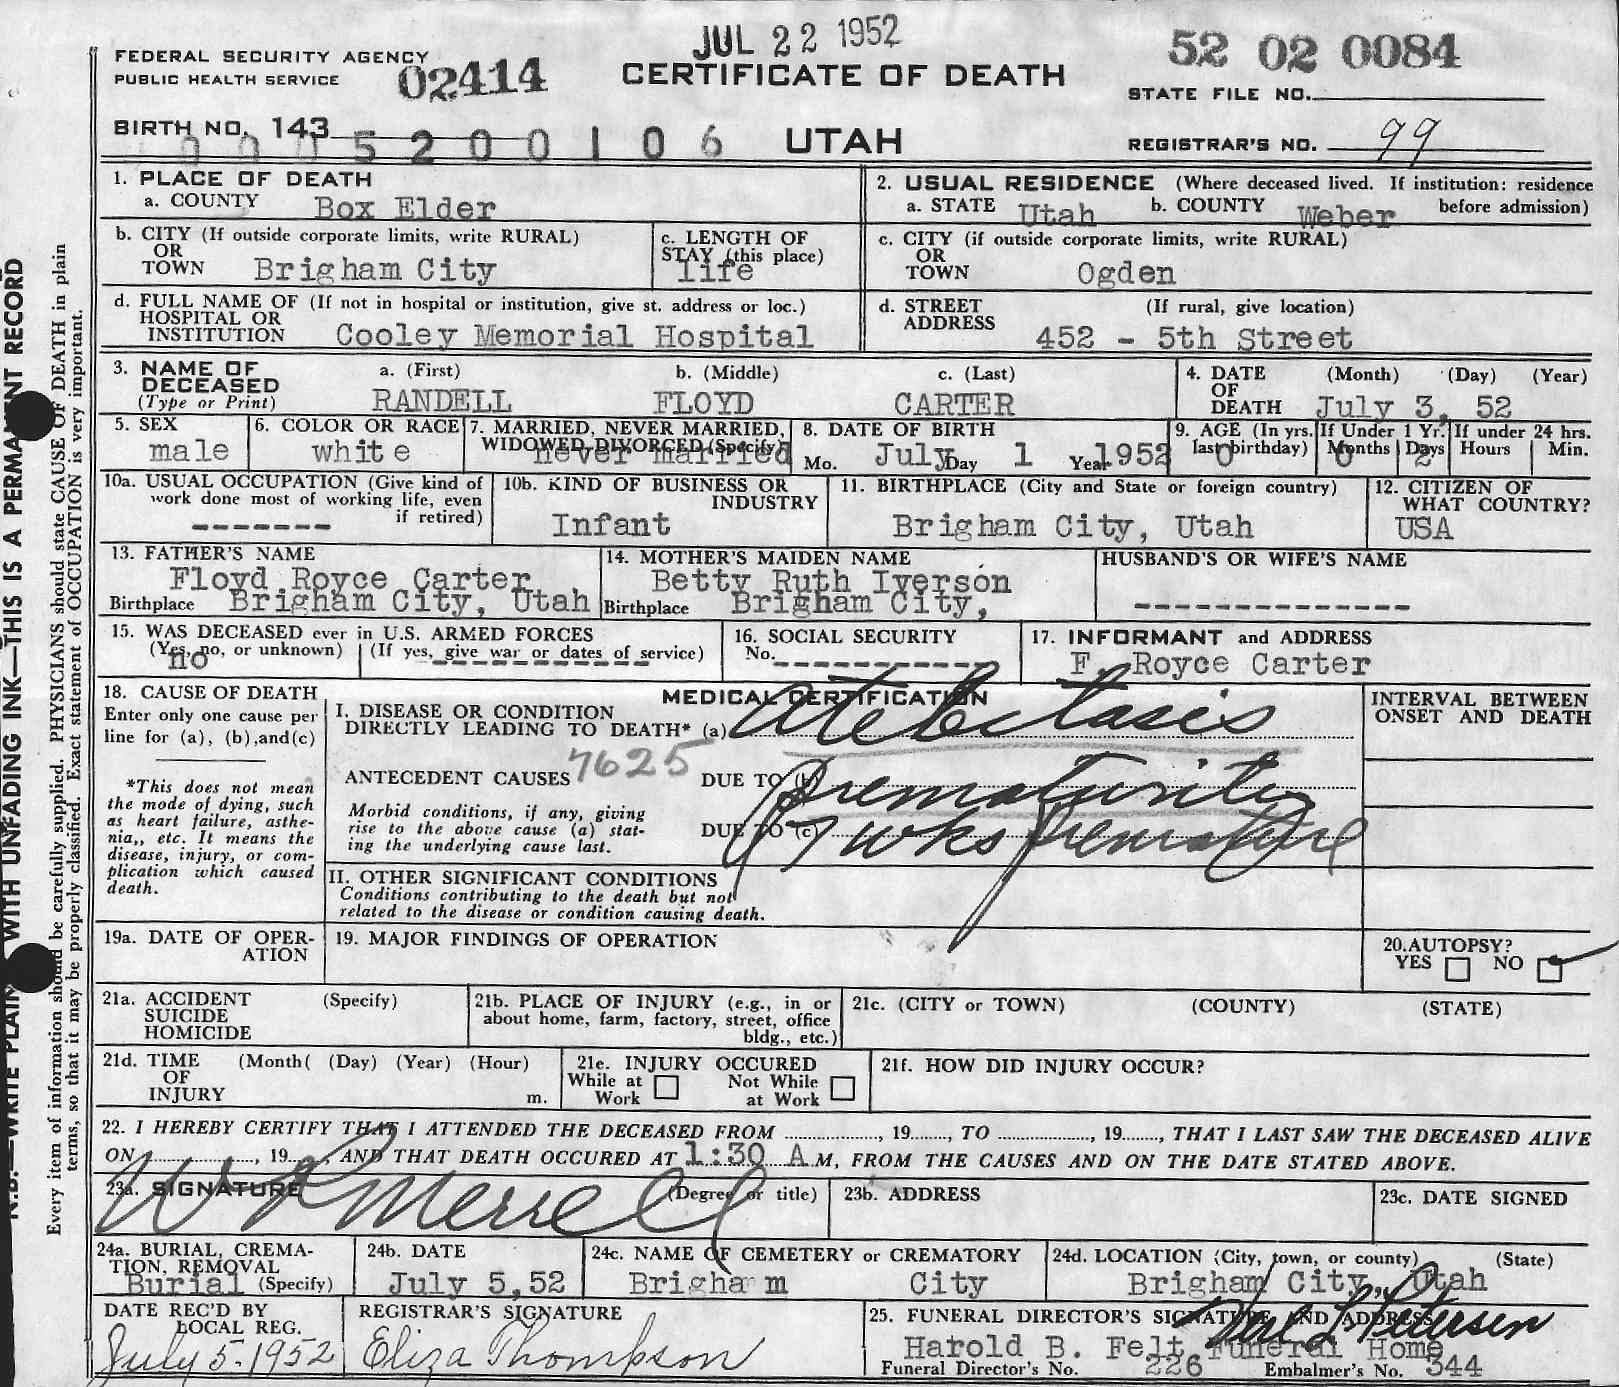 JUL 22 1952
52 02 0084
FEDERAL SECURITY AGENCY
PUBLIC HEALTH SERVICE
02414
CERTIFICATE OF DEATH
STATE FILE NO.
BIRTH NO. 143
0005200106
UTAH
REGISTRAR'S NO. 99
1. PLACE OF DEATH
a. COUNTY Box Elder
2. USUAL RESIDENCE (Where deceased lived. If institution: residence before admission)
a. STATE Utah b. COUNTY Weber
b. CITY (If outside corporate limits, write RURAL)
OR
TOWN Brigham City
c. LENGTH OF
STAY (this place)
life
c. CITY (if outside corporate limits, write RURAL)
OR
TOWN Ogden
d. FULL NAME OF (If not in hospital or institution, give st. address or loc.)
HOSPITAL OR
INSTITUTION Cooley Memorial Hospital
d. STREET (If rural, give location)
ADDRESS 452 - 5th Street
3. NAME OF
DECEASED
(Type or Print)
a. (First) b. (Middle) c. (Last)
RANDELL FLOYD CARTER
4. DATE (Month) (Day) (Year)
OF
DEATH July 3, 52
5. SEX
male
6. COLOR OR RACE
white
7. MARRIED, NEVER MARRIED,
WIDOWED, DIVORCED (Specify)
never married
8. DATE OF BIRTH
Mo. July Day 1 Year 1952
9. AGE (In yrs. last birthday)
0
If Under 1 Yr.
Months Days
0 2
If under 24 hrs.
Hours Min.
10a. USUAL OCCUPATION (Give kind of
work done most of working life, even
if retired)
-------
10b. KIND OF BUSINESS OR
INDUSTRY
Infant
11. BIRTHPLACE (City and State or foreign country)
Brigham City, Utah
12. CITIZEN OF
WHAT COUNTRY?
USA
13. FATHER'S NAME
Floyd Royce Carter
Birthplace Brigham City, Utah
14. MOTHER'S MAIDEN NAME
Betty Ruth Iverson
Birthplace Brigham City,
HUSBAND'S OR WIFE'S NAME
--------------
15. WAS DECEASED ever in U.S. ARMED FORCES
(Yes, no, or unknown) (If yes, give war or dates of service)
no -------------
16. SOCIAL SECURITY
No. ------------
17. INFORMANT and ADDRESS
F. Royce Carter
18. CAUSE OF DEATH
Enter only one cause per
line for (a), (b), and (c)
*This does not mean
the mode of dying, such
as heart failure, asthe-
nia,, etc. It means the
disease, injury, or com-
plication which caused
death.
MEDICAL CERTIFICATION
I. DISEASE OR CONDITION
DIRECTLY LEADING TO DEATH* (a) Atelectasis
ANTECEDENT CAUSES 7625 DUE TO (b) Prematurity
Morbid conditions, if any, giving
rise to the above cause (a) stat-
ing the underlying cause last.
DUE TO (c) 7 wks premature
II. OTHER SIGNIFICANT CONDITIONS
Conditions contributing to the death but not
related to the disease or condition causing death.
INTERVAL BETWEEN
ONSET AND DEATH
19a. DATE OF OPER-
ATION
19. MAJOR FINDINGS OF OPERATION
20. AUTOPSY?
YES NO
21a. ACCIDENT (Specify)
SUICIDE
HOMICIDE
21b. PLACE OF INJURY (e.g., in or
about home, farm, factory, street, office
bldg., etc.)
21c. (CITY or TOWN) (COUNTY) (STATE)
21d. TIME (Month( (Day) (Year) (Hour)
OF
INJURY m.
21e. INJURY OCCURED
While at Work Not While at Work
21f. HOW DID INJURY OCCUR?
22. I HEREBY CERTIFY THAT I ATTENDED THE DECEASED FROM ................, 19......., TO ................, 19......., THAT I LAST SAW THE DECEASED ALIVE
ON ................, 19......., AND THAT DEATH OCCURED AT 1:30 A M, FROM THE CAUSES AND ON THE DATE STATED ABOVE.
23a. SIGNATURE (Degree or title)
W R Merrell
23b. ADDRESS
23c. DATE SIGNED
24a. BURIAL, CREMA-
TION, REMOVAL
Burial (Specify)
24b. DATE
July 5, 52
24c. NAME OF CEMETERY or CREMATORY
Brigham City
24d. LOCATION (City, town, or county) (State)
Brigham City, Utah
DATE REC'D BY
LOCAL REG.
July 5-1952
REGISTRAR'S SIGNATURE
Eliza Thompson
25. FUNERAL DIRECTOR'S SIGNATURE AND ADDRESS
L Petersen
Harold B. Felt Funeral Home
Funeral Director's No. 226 Embalmer's No. 344
N.B.—WRITE PLAINLY WITH UNFADING INK—THIS IS A PERMANENT RECORD
Every item of information should be carefully supplied. PHYSICIANS should state CAUSE OF DEATH in plain
terms, so that it may be properly classified. Exact statement of OCCUPATION is very important.